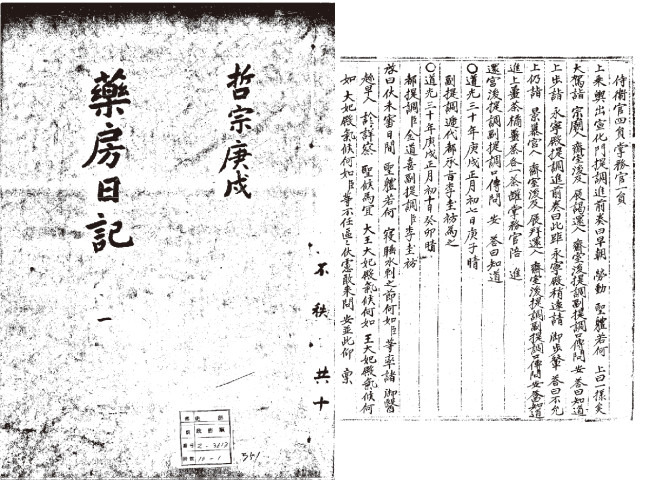 哲宗庚戌
藥房日記
一
不秩 共十
351
侍衛官四員掌務官一員
上乘輿出宣化門提調進前奏曰早朝 勞動 聖體若何 上曰一樣矣
大駕詣 宗廟入 齋室後 展謁入 齋室後提調副提調口傳問 安 答曰知道
上步詣 永寧殿提調進前奏曰此距 永寧殿稍遠請 御步輦 答曰不允
上仍詣 景慕宮入 齋室後 展拜還入 齋室後提調副提調口傳問 安答曰知道
進上薑茶橘薑茶各一茶罐掌務官陪 進
還宮後提調副提調口傳問 安 答曰知道
○道光三十年庚戌正月初七日庚子晴
副提調遞代都承旨李圭祊爲之
○道光三十年庚戌正月初十日癸卯晴
都提調臣金道喜副提調臣李圭祊
啓曰伏未審日間 聖體若何 寢睡水剌之節何如臣等率諸 御醫
趁早入 診詳察 聖候爲宜 大王大妃殿氣候何如 王大妃殿氣候何
如 大妃殿氣候何如臣等不任區區伏慮敢來問 安並此仰 稟